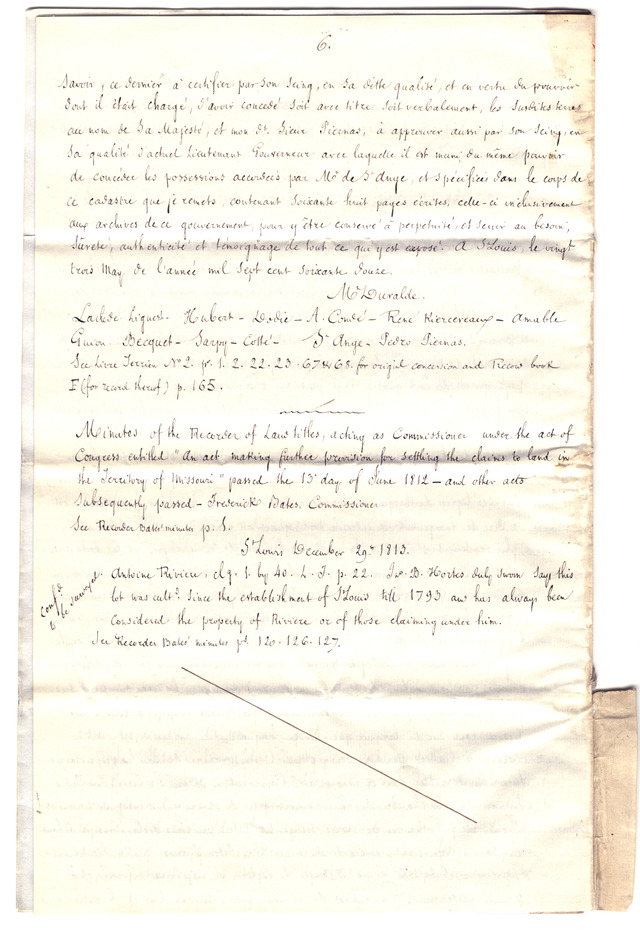 6.
Savoir, ce dernier à certifier par son seing, en sa ditte qualité, et en vertu du pouvoir
dont il était chargé, d'avoir concedé soit avec titre soit verbalement, les susdites terres
au nom de Sa Majesté, et mon dt. Sieur Piernas, à approuver aussi par son seing, en
sa qualité d'actuel Lieutenant Gouverneur avec laquelle il est muni du même pouvoir
de concéder les possessions accordées par Mr. de St. Ange, et spécifiées dans le corps de
ce cadastre que je remets, contenant soixante huit pages écrites, celle-ci inclusivement
aux archives de ce gouvernement, pour y être conservé à perpétuité, et servir au besoin,
sûreté, authenticité et témoignage de tout ce qui y est exposé. A St. Louis, le vingt
trois May, de l'année mil sept cent soixante douze.
Mn Duralde.
Laclede Liguest - Hubert - Dodie - A. Condé - René Kiercereaux - Amable
Guion Becquet - Sarpy - Cotté - St. Ange - Pedro Piernas.
See Livre Terrien No 2. p. 1. 2. 22. 23. 67 & 68. for original concession and Record book
F (for record thereof) p. 165.
Minutes of the Recorder of Land titles, acting as Commissioner under the act of
Congress entitled "An act making further provision for settling the claims to land in
the Territory of Missouri" passed the 13th day of June 1812 - and other acts
subsequently passed - Frederick Bates. Commissioner
See Recorder Bates' minutes p. 1.
St. Louis December 29th 1813.
Antoine Riviere, clg. 1. by 40. L. T. p. 22. Jno. B. Hortes duly sworn Says this
lot was cultd. since the establishment of St. Louis till 1793 and has always been
considered the property of Riviere or of those claiming under him.
See Recorder Bates' minutes pd 120. 126. 127.
Confd
to be surveyed